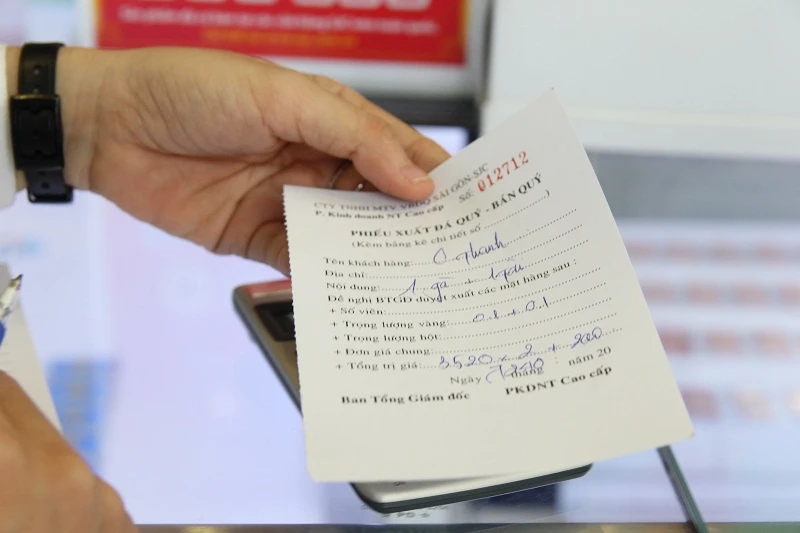 CTY TNHH MTV VBĐQ SÀI GÒN-SJC
P. Kinh doanh NT Cao cấp
Số: 012712
PHIẾU XUẤT ĐÁ QUÝ - BÁN QUÝ
(Kèm bảng kê chi tiết số )
Tên khách hàng: O Thanh
Địa chỉ:
Nội dung: 1 gà +
Đề nghị BTGĐ duyệt xuất các mặt hàng sau :
+ Số viên:
+ Trọng lượng vàng: 0.1 + 0.1
+ Trọng lượng hột:
+ Đơn giá chung:
+ Tổng trị giá: 3520 x 2 + 200
7240
Ngày tháng năm 20
Ban Tổng Giám đốc PKDNT Cao cấp